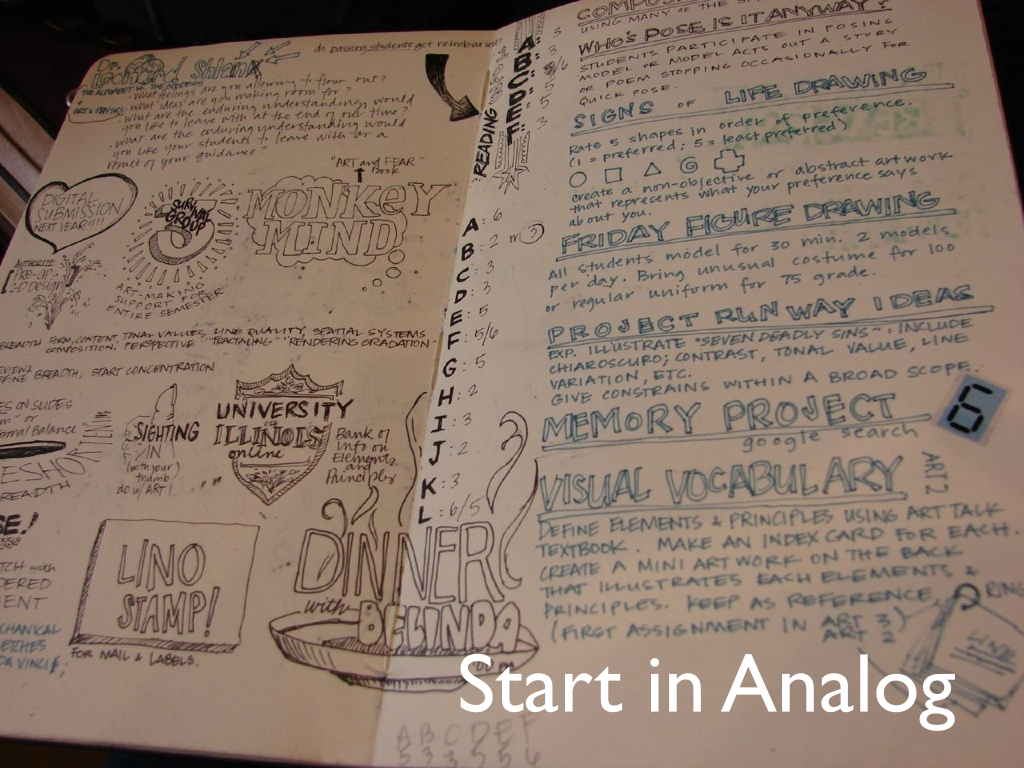 do passing students get reimbursed
Leonard Shlain
THE ALPHABET vs. THE GODDESS
ART & PHYSICS
• what feelings are you allowing to flow out?
• what ideas are you making room for?
• what are the enduring understandings would
you like to leave with at the end of our time?
• what are the enduring understanding would
you like your students to leave with as a
result of your guidance?
DIGITAL
SUBMISSION
NEXT YEAR!!!!
SURVIVAL
GROUP
ART-MAKING
SUPPORT FOR
ENTIRE SEMESTER
"ART and FEAR"
book
MONKEY
MIND
PRE-OP
2D DESIGN
BREADTH FORM, CONTENT, TONAL VALUES, LINE QUALITY, SPATIAL SYSTEMS
COMPOSITION, PERSPECTIVE "FRACTALING" RENDERING GRADATION
BREADTH, START CONCENTRATION
ON SLIDES
Balance
BREADTH
SIGHTING
IN
(with your
thumb
do w/ ART 1)
UNIVERSITY
of
ILLINOIS
online
Bank of
info on
Elements
and
Principles
LINO
STAMP!
FOR MAIL & LABELS.
DINNER
with
BELINDA
READING
A B C D E F
A: 6
B: 2 or 3
C: 3
D: 3
E: 5
F: 5/6
G: 5
H: 2
I: 3
J: 2
K: 3
L: 6/5
A B C D E F
5 3 3 5 5 6
USING MANY OF THE
WHO'S POSE IS IT ANYWAY?
STUDENTS PARTICIPATE IN POSING
MODEL OR MODEL ACTS OUT A STORY
OR POEM STOPPING OCCASIONALLY FOR
QUICK POSE.
SIGNS OF LIFE DRAWING
Rate 5 shapes in order of preference.
(1 = preferred; 5 = least preferred)
create a non-objective or abstract art work
that represents what your preference says
about you.
FRIDAY FIGURE DRAWING
All students model for 30 min. 2 models
per day. Bring unusual costume for 100
or regular uniform for 75 grade.
PROJECT RUNWAY IDEAS
EXP. ILLUSTRATE "SEVEN DEADLY SINS". INCLUDE
CHIAROSCURO; CONTRAST, TONAL VALUE, LINE
VARIATION, ETC.
GIVE CONSTRAINS WITHIN A BROAD SCOPE.
6
MEMORY PROJECT
google search
VISUAL VOCABULARY
ART 2
DEFINE ELEMENTS & PRINCIPLES USING ART TALK
TEXTBOOK. MAKE AN INDEX CARD FOR EACH.
CREATE A MINI ARTWORK ON THE BACK
THAT ILLUSTRATES EACH ELEMENTS &
PRINCIPLES. KEEP AS REFERENCE.
(FIRST ASSIGNMENT IN ART 3)
ART 2
RING
LINE
Start in Analog